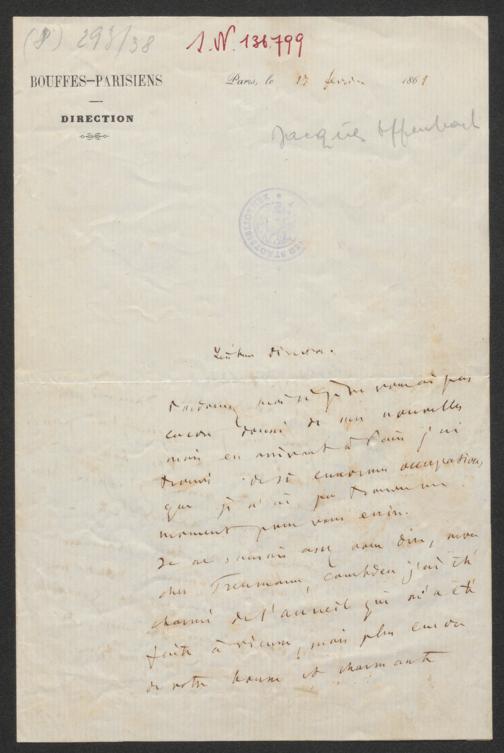 (P) 293/38
I.N. 136.799
BOUFFES-PARISIENS
DIRECTION
Paris, le 13 février 1861
Jacques Offenbach
Pardonnez moi si je ne vous ai pas
encore donné de mes nouvelles
mais en arrivant à Paris j'ai
trouvé de si enormes occupations,
que je n'ai pu trouver un
moment pour vous ecrire.
Je ne saurais assez vous dire, mon
cher Treumann, combien j'ai été
charmé de l'accueil qui m'a été
faite à vienne, mais plus encore
de votre bonne et charmante